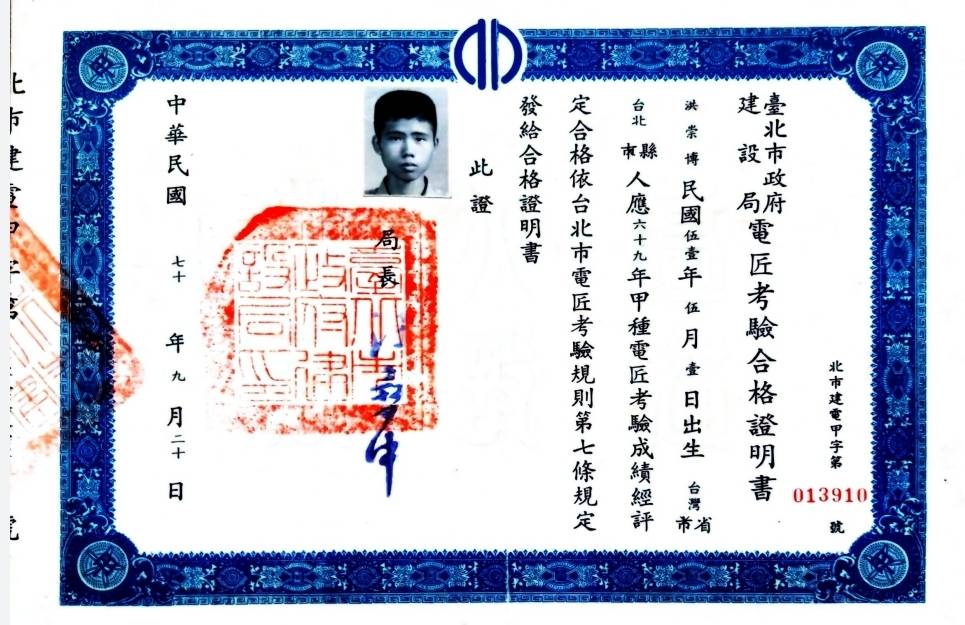 北市建電甲字第013910號
臺北市政府建設局電匠考驗合格證明書
洪崇博民國伍壹年伍月壹日出生台灣省市
台北縣市人應六十九年甲種電匠考驗成績經評
定合格依台北市電匠考驗規則第七條規定
發給合格證明書
此證
局長
中華民國七十年九月二十日